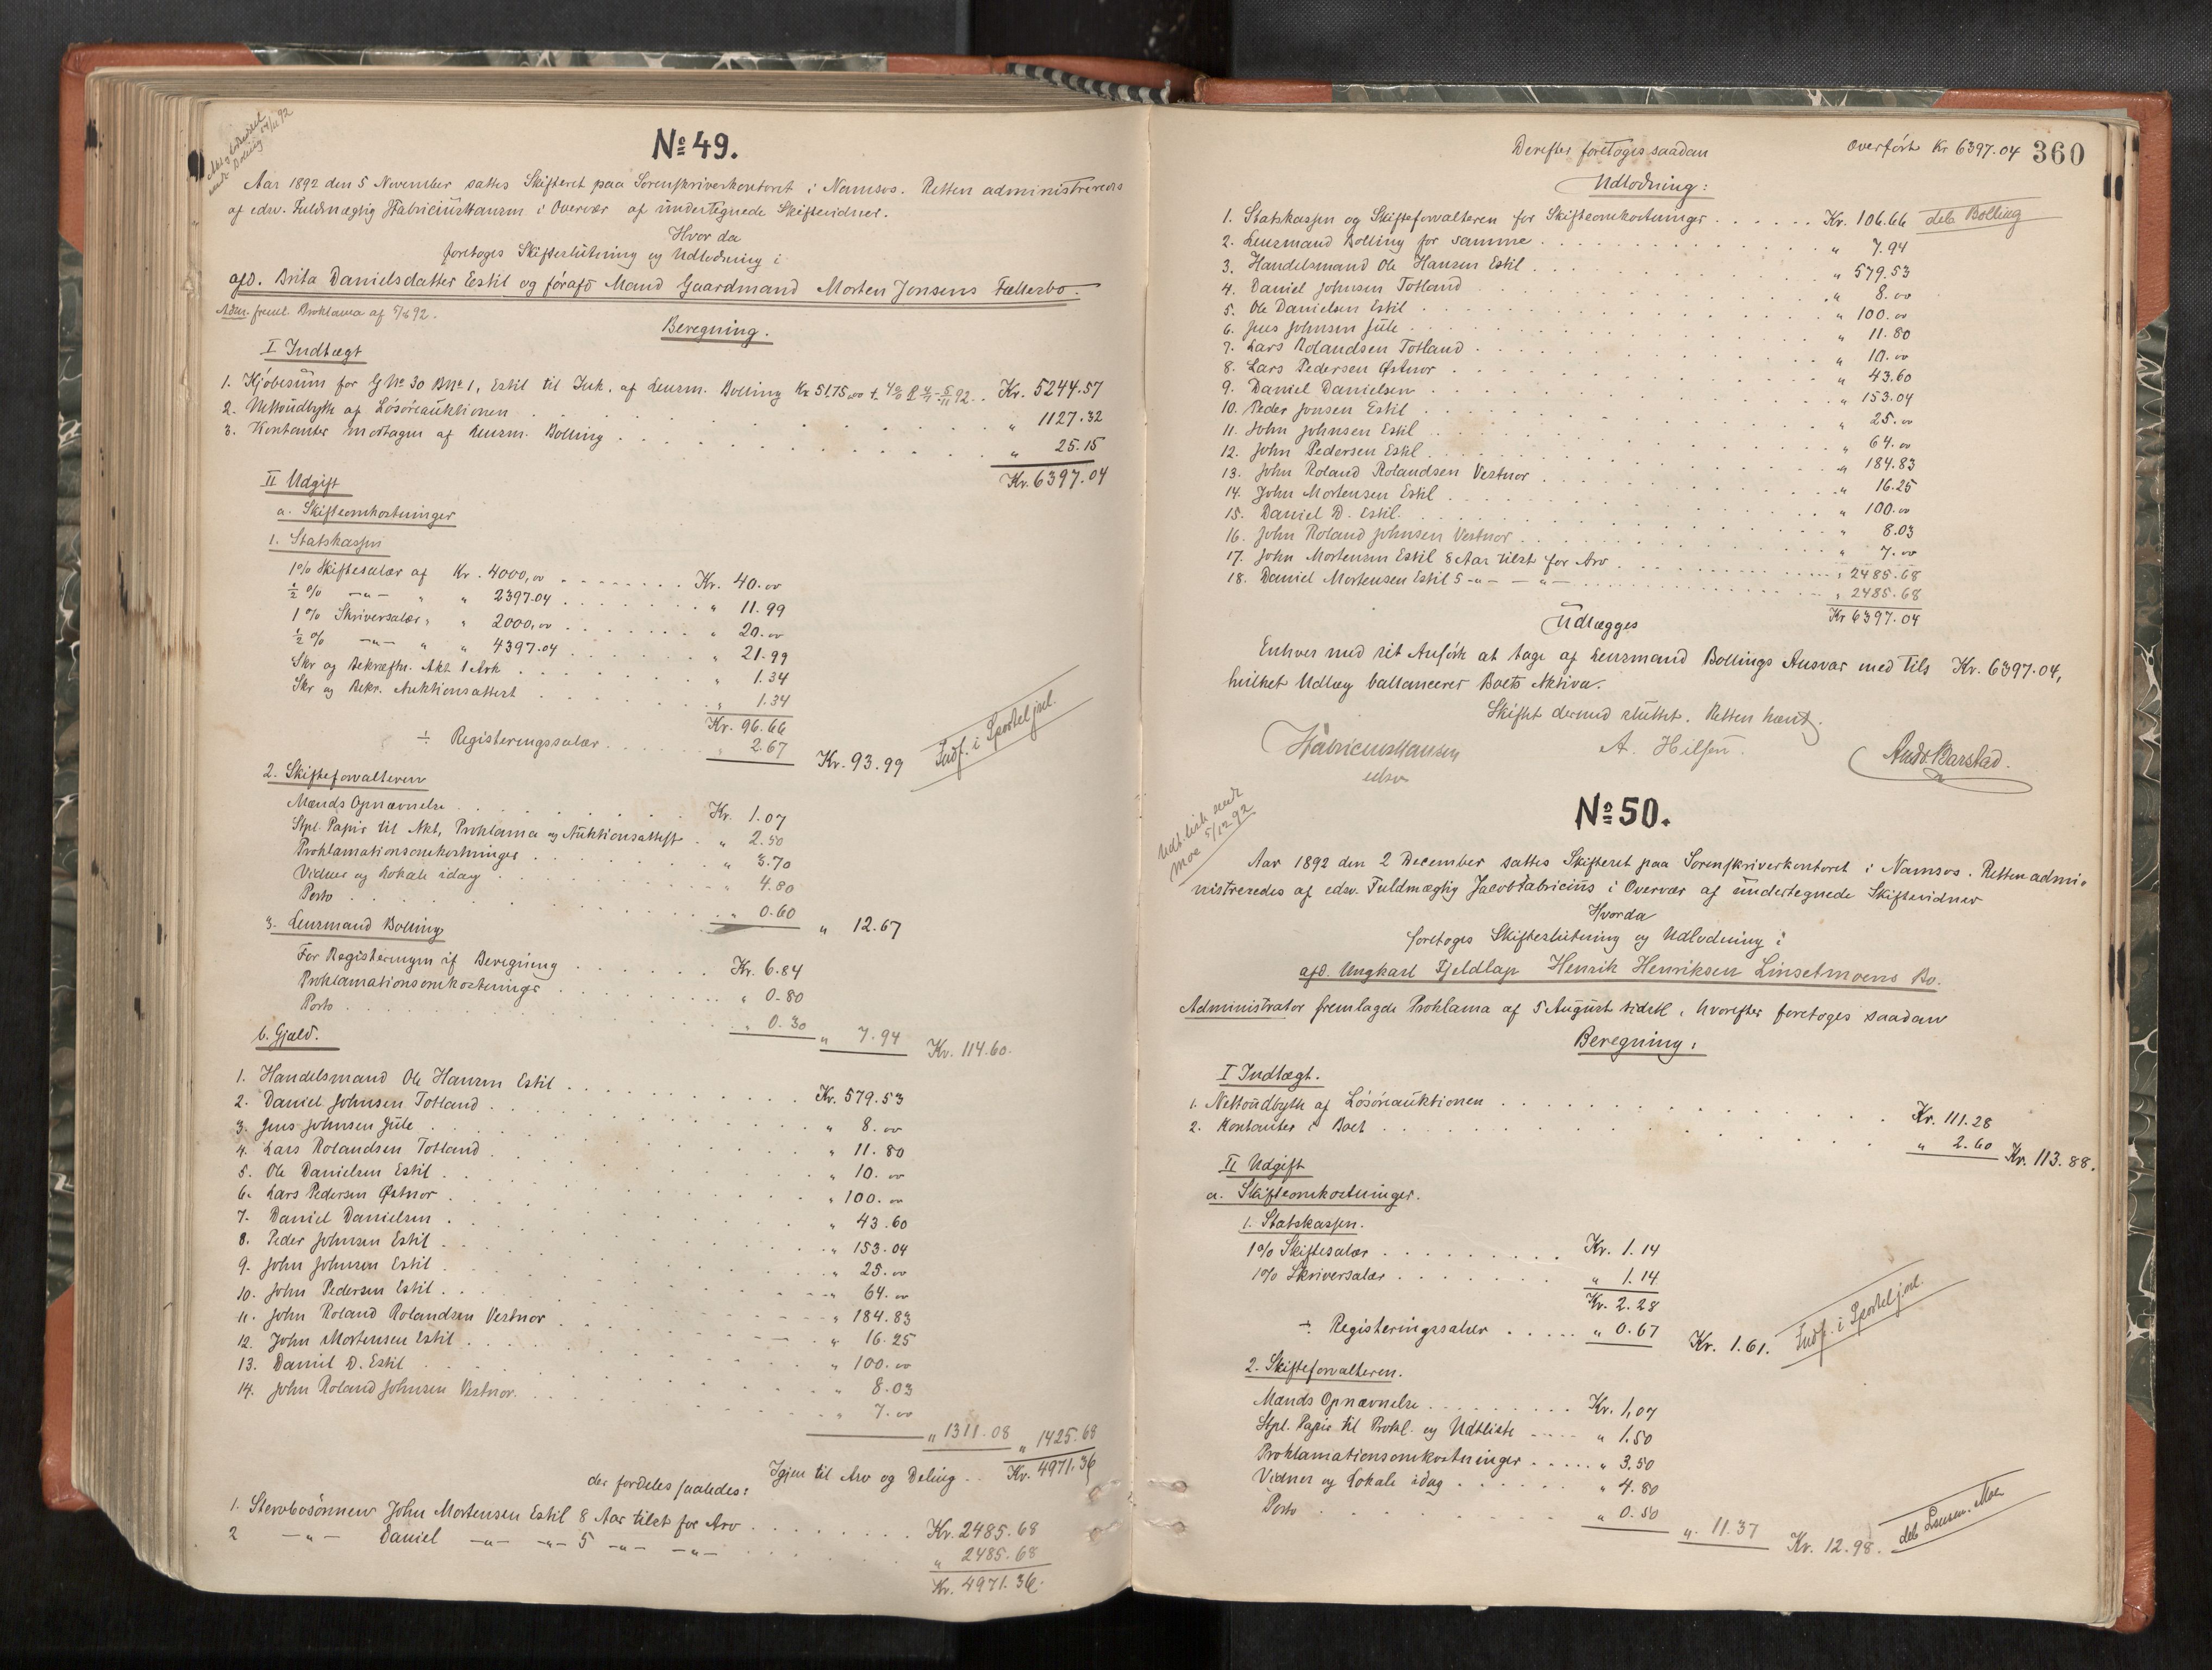 № 49.
Aar 1892 den 5 November sattes Skifteret paa Sorenskriverkontoret i Namsos. Retten administreredes
af edsv. Fuldmægtig Fabricius Hansen i Overvær af undertegnede Skiftevidner.
Hvor da
foretoges Skifteslutning og Udlodning i
afd. Brita Danielsdatter Estil og førafd Mand Gaardmand Morten Jonsens Fællesbo.
Adm. freml. Proklama af 92.
Beregning.
I Indtægt
1. Kjøbesum for G№ 30 B№ 1, Estil til Ink. af Lensm. Bolling Kr 5175,00 + 4% 92.. Kr. 5244.57
2. Nettoudbytte af Løsøreauktionen " 1127.32
3. Kontanter modtagen af Lensm. Bolling " 25.15
Kr. 6397.04
II Udgift
a. Skifteomkostninger
1. Statskassen
1% Skiftesalær af Kr. 4000,00 Kr. 40.00
½ % -"- " " 2397.04 " 11.99
1% Skriversalær " " 2000,00 " 20.00
½ % -"- " " 4397.04 " 21.99
Skr og Bekræftn. Akt 1 Ark " 1.34
Skr og Bekr. Auktionsattest " 1.34
Kr. 96.66
÷ Registeringssalær " 2.67 Kr. 93.99
Indf. i Sporteljnl.
2. Skifteforvalteren
Mænds Opnævnelse Kr. 1.07
Stpl. Papir til Akt, Proklama og Auktionsattest " 2.50
Proklamationsomkostninger " 3.70
Vidner og Lokale idag " 4.80
Porto " 0.60 " 12.67
3. Lensmand Bolling
For Registeringen if Beregning Kr. 6.84
Proklamationsomkostninger " 0.80
Porto " 0.30 " 7.94 Kr. 114.60.
b. Gjæld.
1. Handelsmand Ole Hansen Estil Kr. 579.53
2. Daniel Johnsen Totland " 8.00
3. Jens Johnsen Jule " 11.80
4. Lars Rolandsen Totland " 10.00
5. Ole Danielsen Estil " 100.00
6. Lars Pedersen Østnor " 43.60
7. Daniel Danielsen " 153.04
8. Peder Johnsen Estil " 25.00
9. John Johnson Estil " 64.00
10. John Pedersen Estil " 184.83
11. John Roland Rolandsen Vestnor " 16.25
12. John Mortensen Estil " 100.00
13. Daniel D. Estil " 8.03
14. John Roland Johnsen Vestnor. " 7.00
" 1311.08 " 1425.68
Igjen til Arv og Deling Kr. 4971.36
der fordeles saaledes:
1. Stervbosønnen John Mortensen Estil 8 Aar tilst for Arv Kr. 2485.68
2 -"- Daniel -"- -"- 5 -"- -"- " 2485.68
Kr. 4971.36.
Derefter foretoges saadan
Overført Kr 6397.04 360
Udlodning:
1. Statskassen og Skifteforvalteren for Skifteomkostninger Kr. 106.66 deb Bolling
2. Lensmand Bolling for samme " 7.94
3. Handelsmand Ole Hansen Estil " 579.53
4. Daniel Johnsen Totland " 8.00
5. Ole Danielsen Estil " 100.00
6. Jens Johnsen Jule " 11.80
7. Lars Rolandsen Totland " 10.00
8. Lars Pedersen Østnor " 43.60
9. Daniel Danielsen " 153.04
10. Peder Jonsen Estil " 25.00
11. John Johnsen Estil " 64.00
12. John Pedersen Estil " 184.83
13. John Roland Rolandsen Vestnor " 16.25
14. John Mortensen Estil " 100.00
15. Daniel D. Estil. " 8.03
16. John Roland Johnsen Vestnor " 7.00
17. John Mortensen Estil 8 Aar tilst for Arv " 2485.68
18. Daniel Mortensen Estil 5 -"- — "- " 2485.68
Kr 6397.04
Udlægges
Enhver med sit Anførte at tage af Lensmand Bollings Ansvar med tils Kr. 6397.04,
hvilket Udlæg ballancerer Boets Aktiva.
Skiftet dermed sluttet. Retten hævet.
Fabricius Hansen
edsv
A. Hilsen.
Andr. Barstad.
Udt.liste sendt
Moe 5/12 92
№ 50.
Aar 1892 den 2 December sattes Skifteret paa Sorenskriverkontoret i Namsos. Retten admi-
nistreredes af edsv. Fuldmægtig Jacob Fabricius i Overvær af undertegnede Skiftevidner
Hvorda
foretoges Skifteslutning og Udlodning i
afd. Ungkarl Fjeldlap Henrik Henriksen Linsetmoens Bo.
Administrator fremlagde Proklama af 5 August sidstl, hvorefter foretoges saadan
Beregning:
I Indtægt.
1. Nettoudbytte af Løsøreauktionen Kr. 111.28
2. Kontanter i Boet " 2.60 Kr. 113.88.
II Udgift
a. Skifteomkostninger.
1. Statskassen.
1% Skiftesalær Kr. 1.14
1% Skriversalær " 1.14
Kr. 2.28
÷ Registeringssalær " 0.67 Kr. 1.61.
Indf. i Sporteljnl.
2. Skifteforvalteren.
Mænds Opnævnelse Kr. 1,07
Stpl. Papir til Prokl. og Udtliste " 1.50
Proklamationsomkostninger " 3.50
Vidner og Lokale idag " 4.80
Porto " 0.50 " 11.37 Kr. 12.98.
deb Lensm. Moe